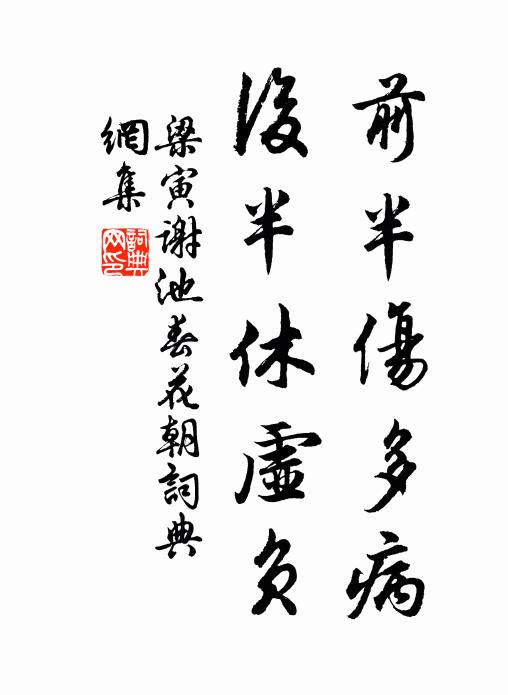 前半傷多病
後半休虛負
梁寅謝池春花朝詞典
網集
詞典
网印